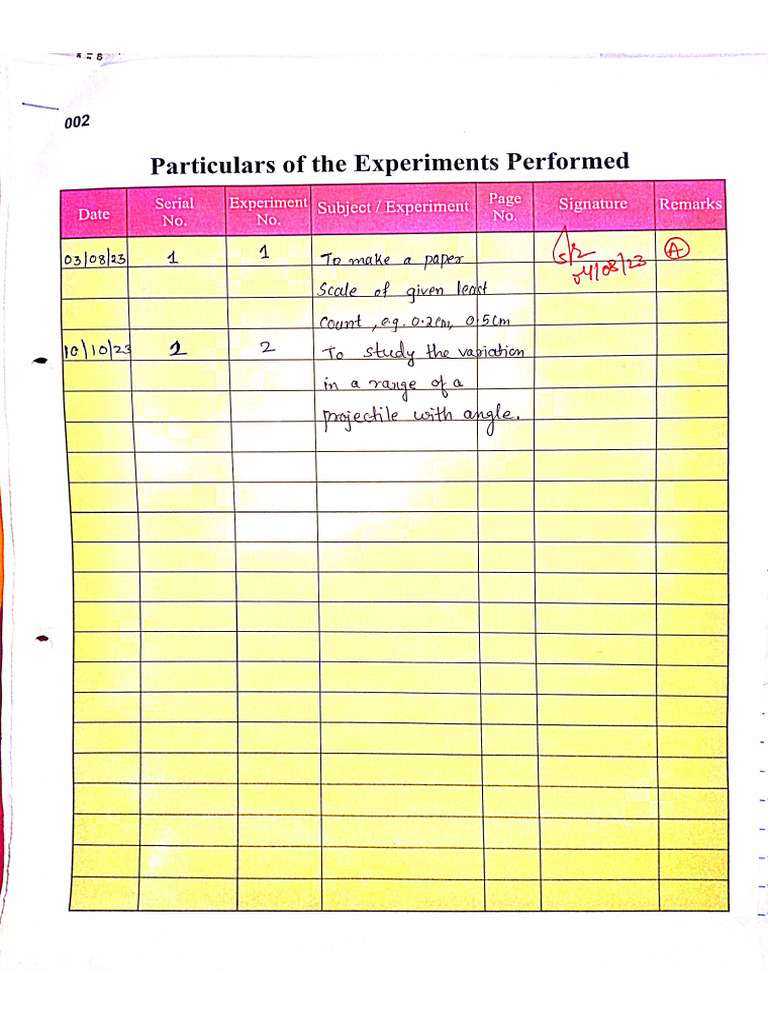 002
Particulars of the Experiments Performed
Date Serial No. Experiment No. Subject / Experiment Page No. Signature Remarks
03/08/23 1 1 To make a paper A
Scale of given least 04/08/23
Count, e.g. 0.2cm, 0.5cm
10/10/23 2 2 To study the variation
in a range of a
projectile with angle.